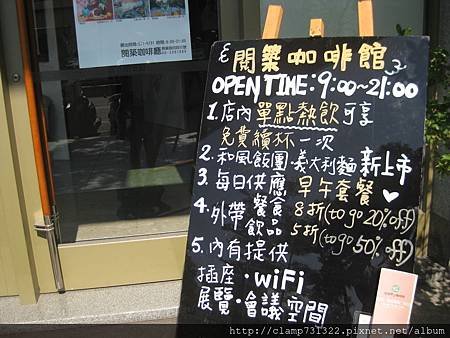 開築咖啡館
OPEN TIME:9:00~21:00
1.店內單點熱飲可享
免費續杯一次
2.和風飯團·義大利麵 新上市
3.每日供應 早午套餐
4.外帶 餐食 8折(to go 20% off)
飲品 5折(to go 50% off)
5.內有提供
插座·wiFi
展覽·會議空間
開築咖啡廳
http://clamp731322.pixnet.net/album